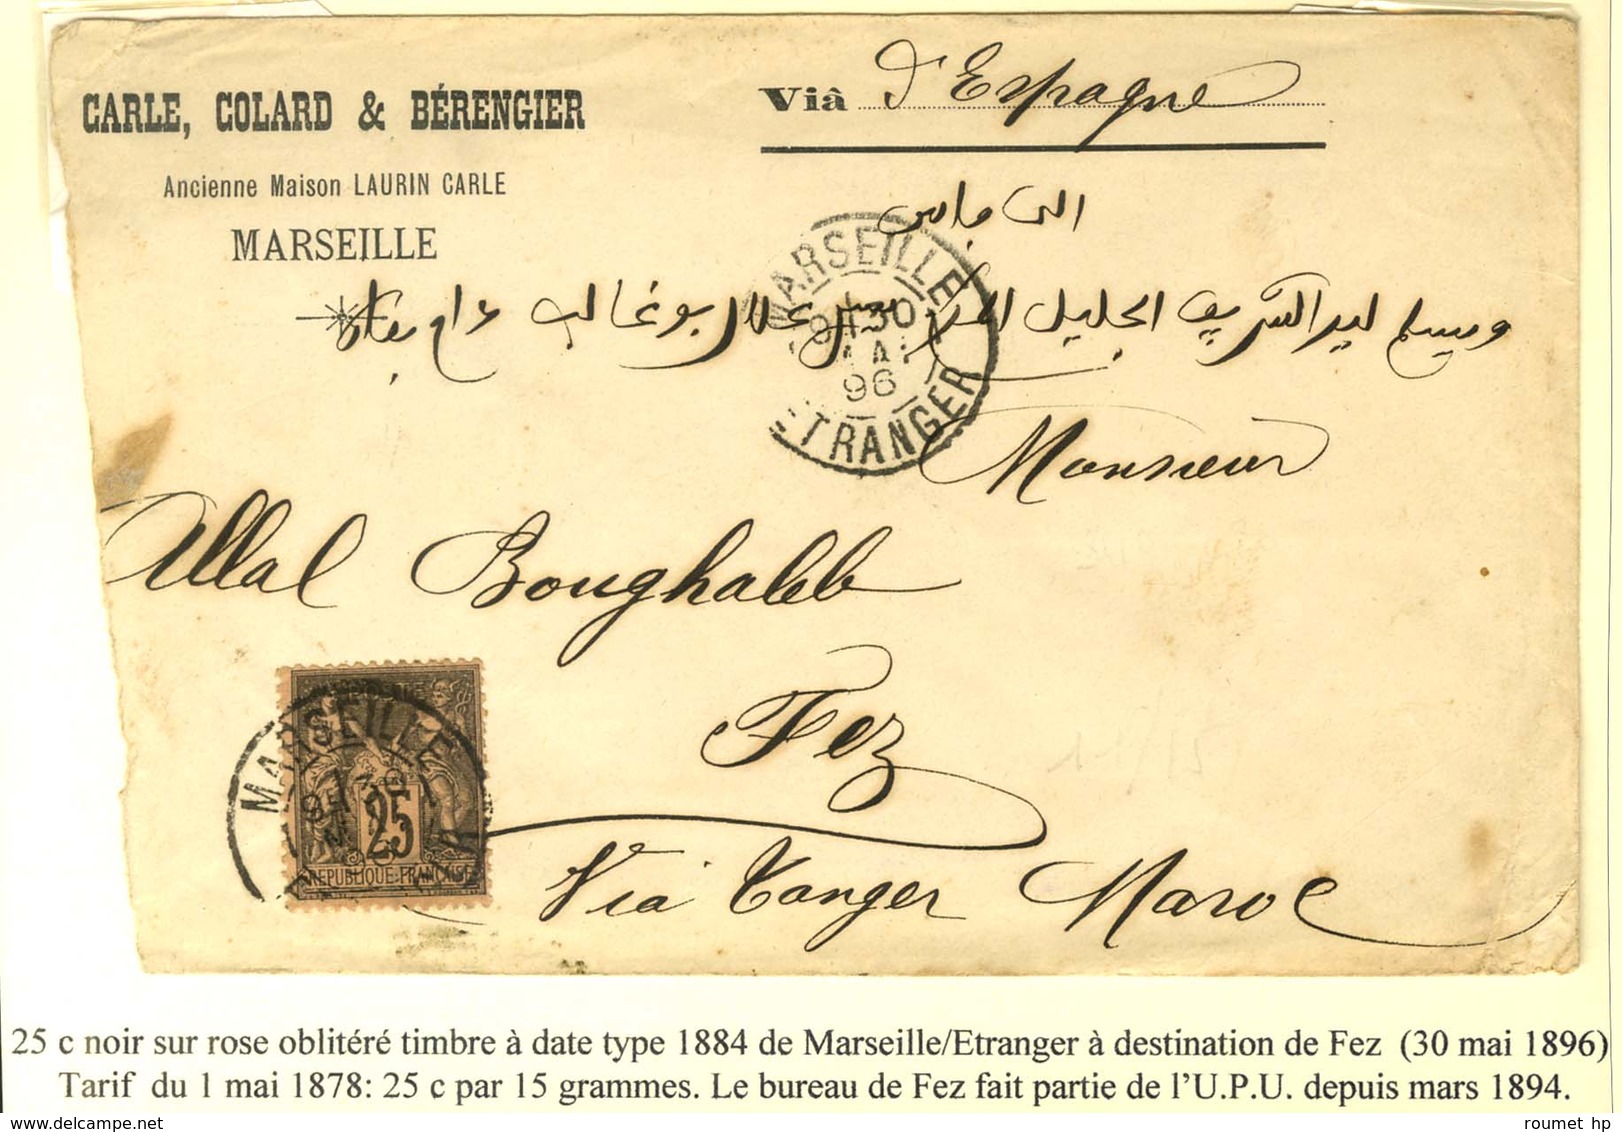 CARLE, COLARD & BÉRENGIER
Ancienne Maison LAURIN CARLE
MARSEILLE
Viâ d'Espagne
الى فاس
ويسلم ليد الشريف الجليل علال بوغالب
MARSEILLE
30
MAI
96
ETRANGER
Monsieur
Allal Boughaleb
Fez
Via Tanger Maroc
MARSEILLE
25
REPUBLIQUE FRANÇAISE
25 c noir sur rose oblitéré timbre à date type 1884 de Marseille/Etranger à destination de Fez (30 mai 1896)
Tarif du 1 mai 1878: 25 c par 15 grammes. Le bureau de Fez fait partie de l'U.P.U. depuis mars 1894.
roumet hp